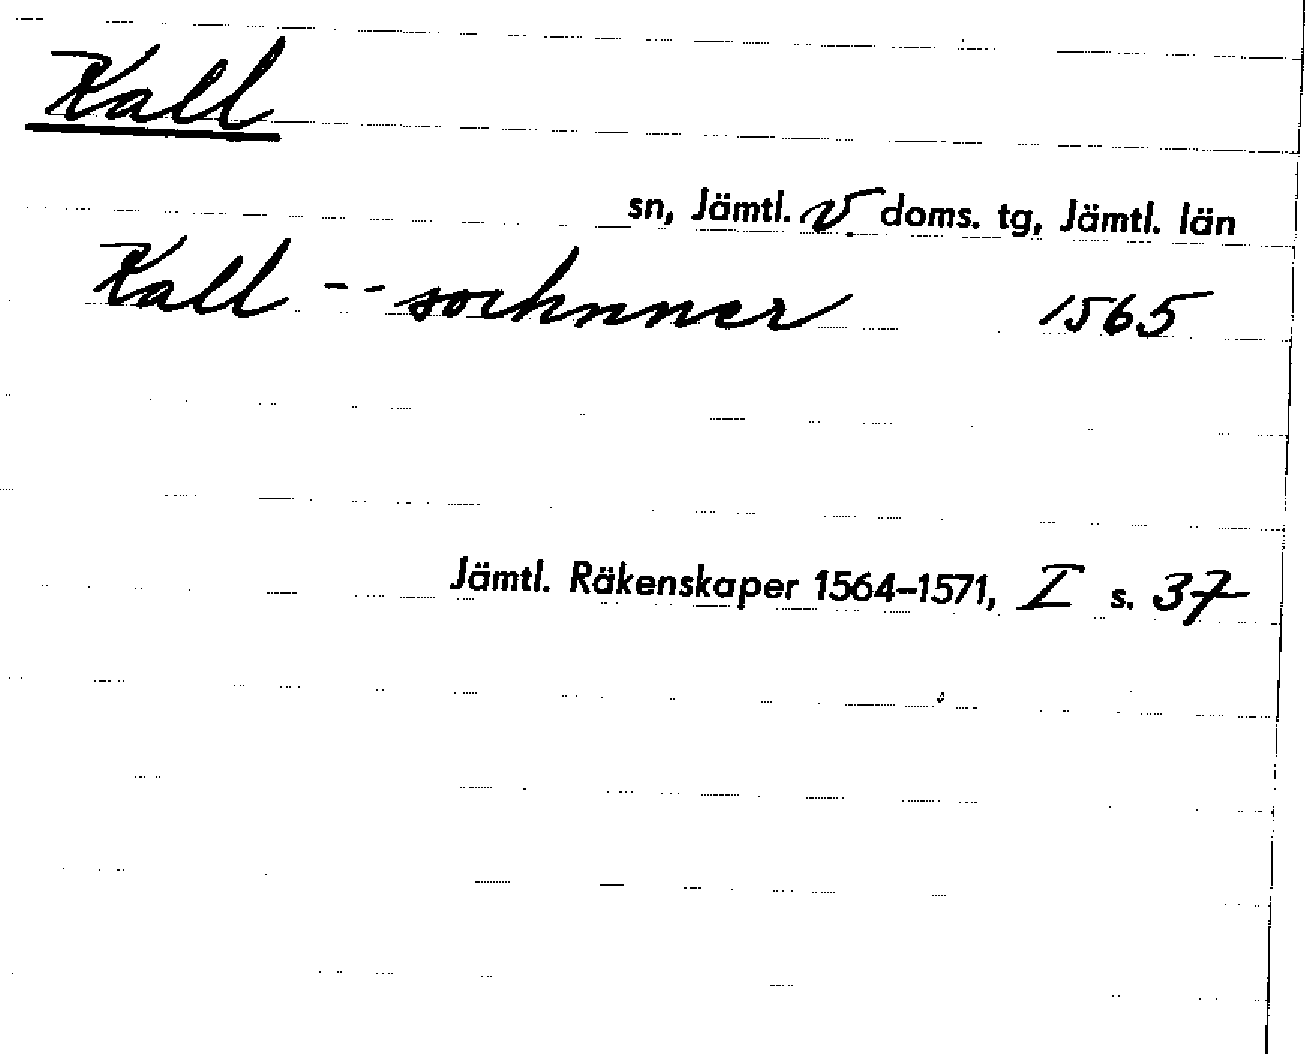 Kall
sn, Jämtl. v. doms. tg, Jämtl. län
Kall -- sochnner 1565
Jämtl. Räkenskaper 1564–1571, I s. 37